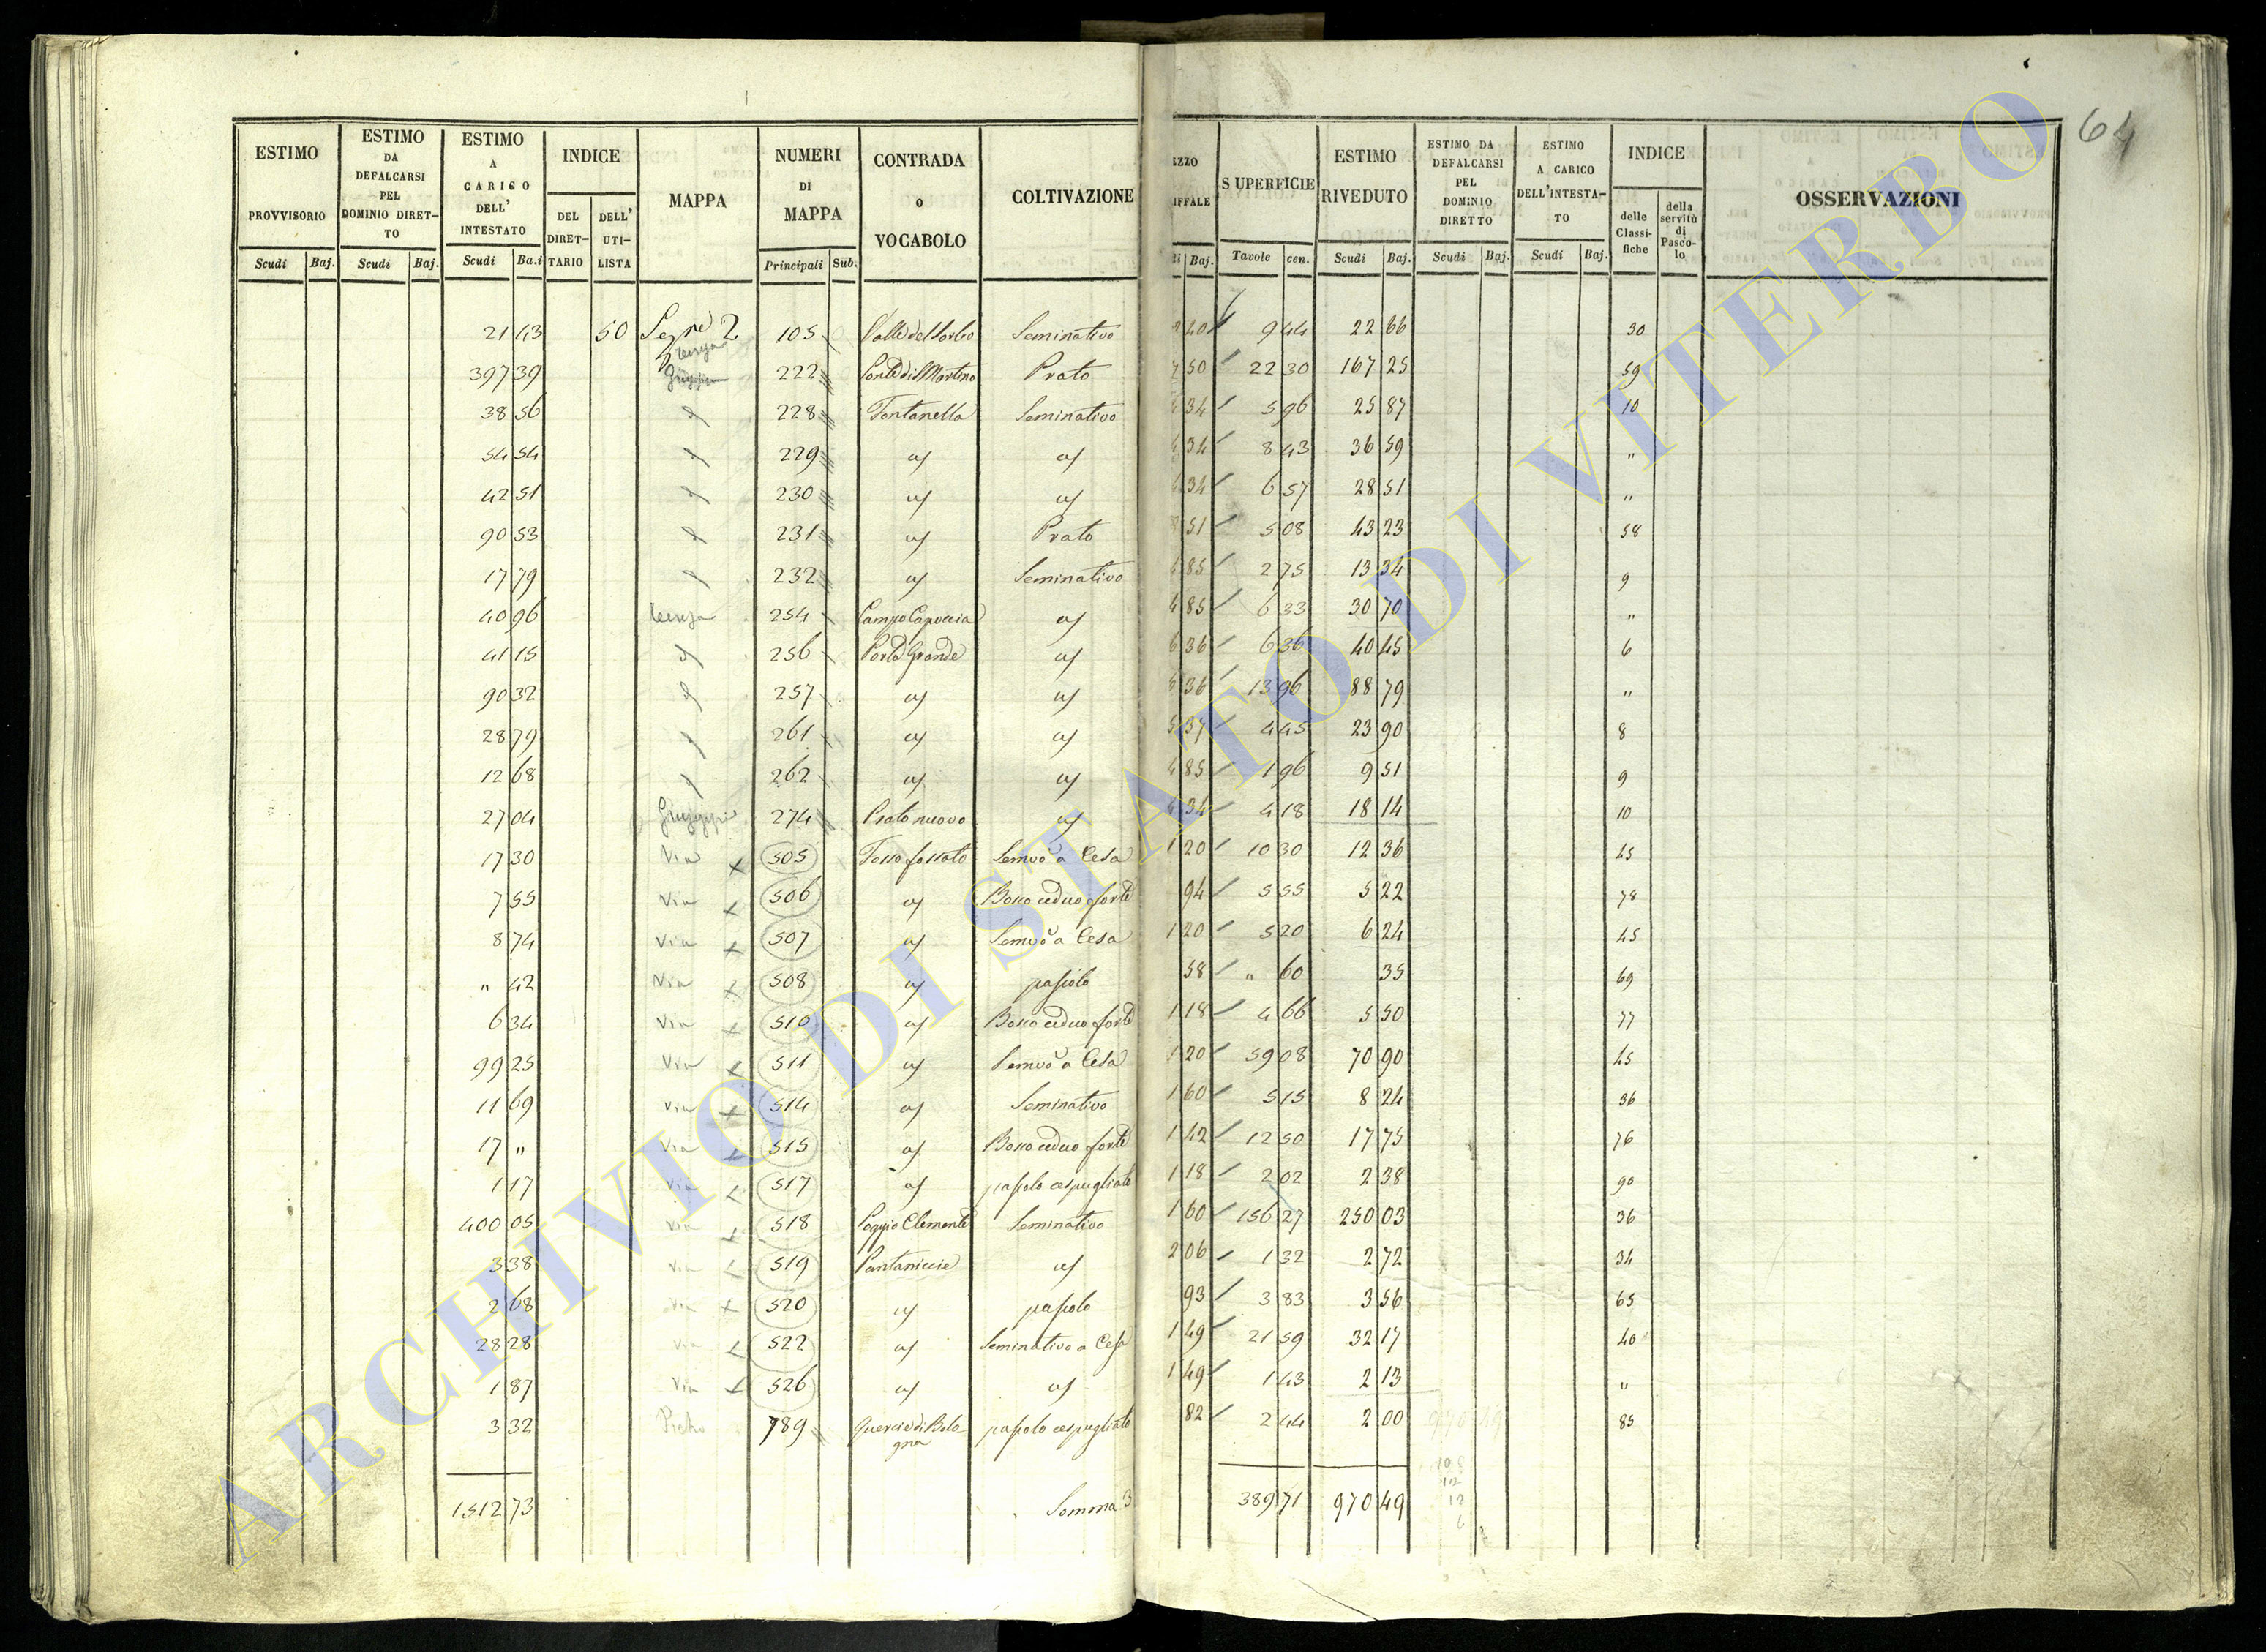 64
ESTIMO PROVVISORIO
ESTIMO DA DEFALCARSI PEL DOMINIO DIRET-TO
ESTIMO A CARICO DELL' INTESTATO
INDICE
DEL DIRET-TARIO
DELL' UTI-LISTA
MAPPA
NUMERI DI MAPPA
CONTRADA o VOCABOLO
COLTIVAZIONE
IZZO
IFFALE
SUPERFICIE
ESTIMO RIVEDUTO
ESTIMO DA DEFALCARSI PEL DOMINIO DIRETTO
ESTIMO A CARICO DELL'INTESTA-TO
INDICE
delle Classi-fiche
della servitù di Pasco-lo
OSSERVAZIONI
Scudi Baj. Scudi Baj. Scudi Ba.i Principali Sub. Baj. Tavole cen. Scudi Baj. Scudi Baj. Scudi Baj.
21 43 50 Segue 2 105 Valle del Sorbo Seminativo 2 40 9 44 22 66 30
397 39 222 Ponte di Martino Prato 7 50 22 30 167 25 59
38 56 228 Fontanella Seminativo 4 34 5 96 25 87 10
54 54 229 4 34 8 43 36 59 "
42 51 230 4 34 6 57 28 51 "
90 53 231 Prato 8 51 5 08 43 23 58
17 79 232 Seminativo 4 85 2 75 13 34 9
40 96 254 Campo Capoccia 4 85 6 33 30 70 "
41 15 256 Porta Grande 6 36 6 36 40 45 6
90 32 257 6 36 13 96 88 79 "
28 79 261 5 37 4 45 23 90 8
12 68 262 4 85 1 96 9 51 9
27 04 Giuseppe 274 Prato nuovo 4 34 4 18 18 14 10
17 30 Via x 505 Fosso fossato Semvo a Cesa 1 20 10 30 12 36 45
7 55 Via x 506 Bosco ceduo forte 94 5 55 5 22 78
8 74 Via x 507 Semvo a Cesa 1 20 5 20 6 24 45
" 42 Via x 508 pascolo 58 " 60 35 69
6 34 Via x 510 Bosco ceduo forte 1 18 4 66 5 50 77
99 25 Via x 511 Semvo a Cesa 1 20 59 08 70 90 45
11 69 Via x 514 Seminativo 1 60 5 15 8 24 36
17 " Via x 515 Bosco ceduo forte 1 42 12 50 17 75 76
1 17 Via x 517 pascolo cespugliato 1 18 2 02 2 38 90
400 05 Via x 518 Poggio Clemente Seminativo 1 60 156 27 250 03 36
3 38 Via x 519 Pantaniccie 2 06 1 32 2 72 34
2 68 Via x 520 pascolo 93 3 83 3 56 65
28 28 Via x 522 Seminativo a Cesa 1 49 21 59 32 17 40
1 87 Via x 526 1 49 1 43 2 13 "
3 32 Pietro 789 Quercie di Bolo-gna pascolo cespugliato 82 2 44 2 00 85
1512 73 Somma 389 71 970 49
ARCHIVIO DI STATO DI VITERBO